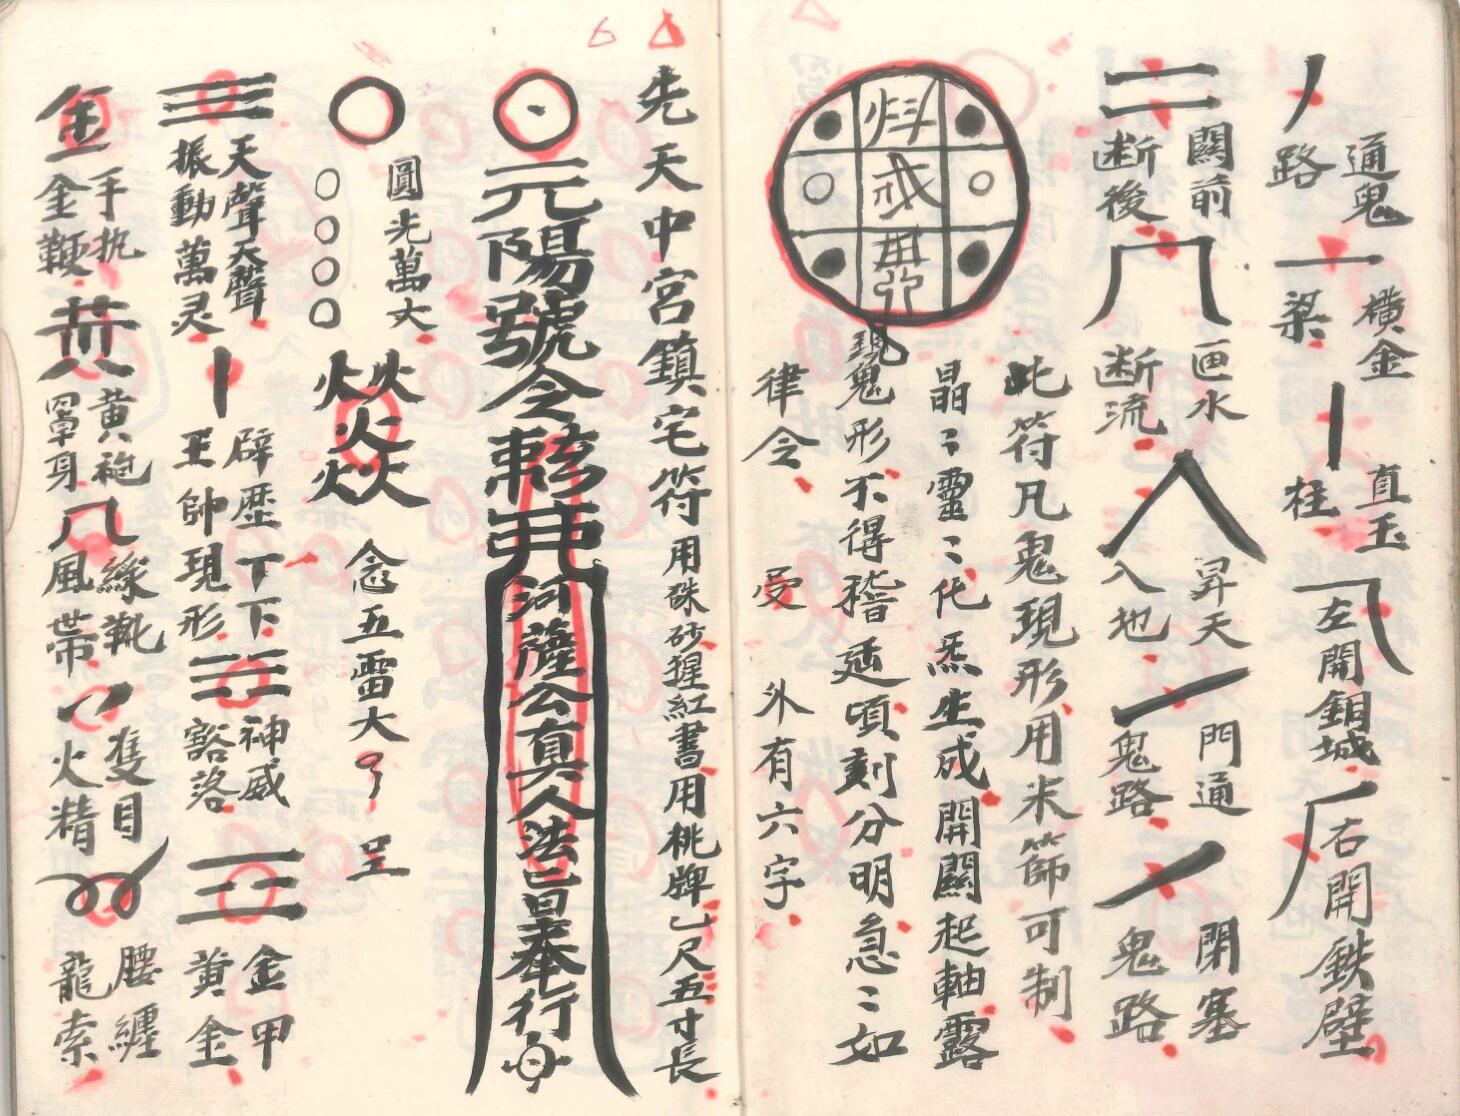 通鬼
路
横金
梁
直玉
柱
左開銅城
右開鉄壁
關前
断後
画水
断流
昇天
入地
門通
鬼路
閉塞
鬼路
此符凡鬼現形用米篩可制
晶〻靈〻化炁生成開闢起軸露
現鬼形不得稽延頃刻分明急〻如
律令 受 外有六字
先天中宮鎮宅符用硃砂猩紅書用桃牌乙尺五寸長
元陽號令
河薩公真人法旨奉行
圓光萬丈
火火火火火
念五雷大
天聲天聲
振動萬灵
霹歷丁下
王帥現形
神威
豁落
金甲
黄金
金
手执
金鞭
黄袍
罩身
綠靴
風帶
隻目
火精
腰纏
龍索